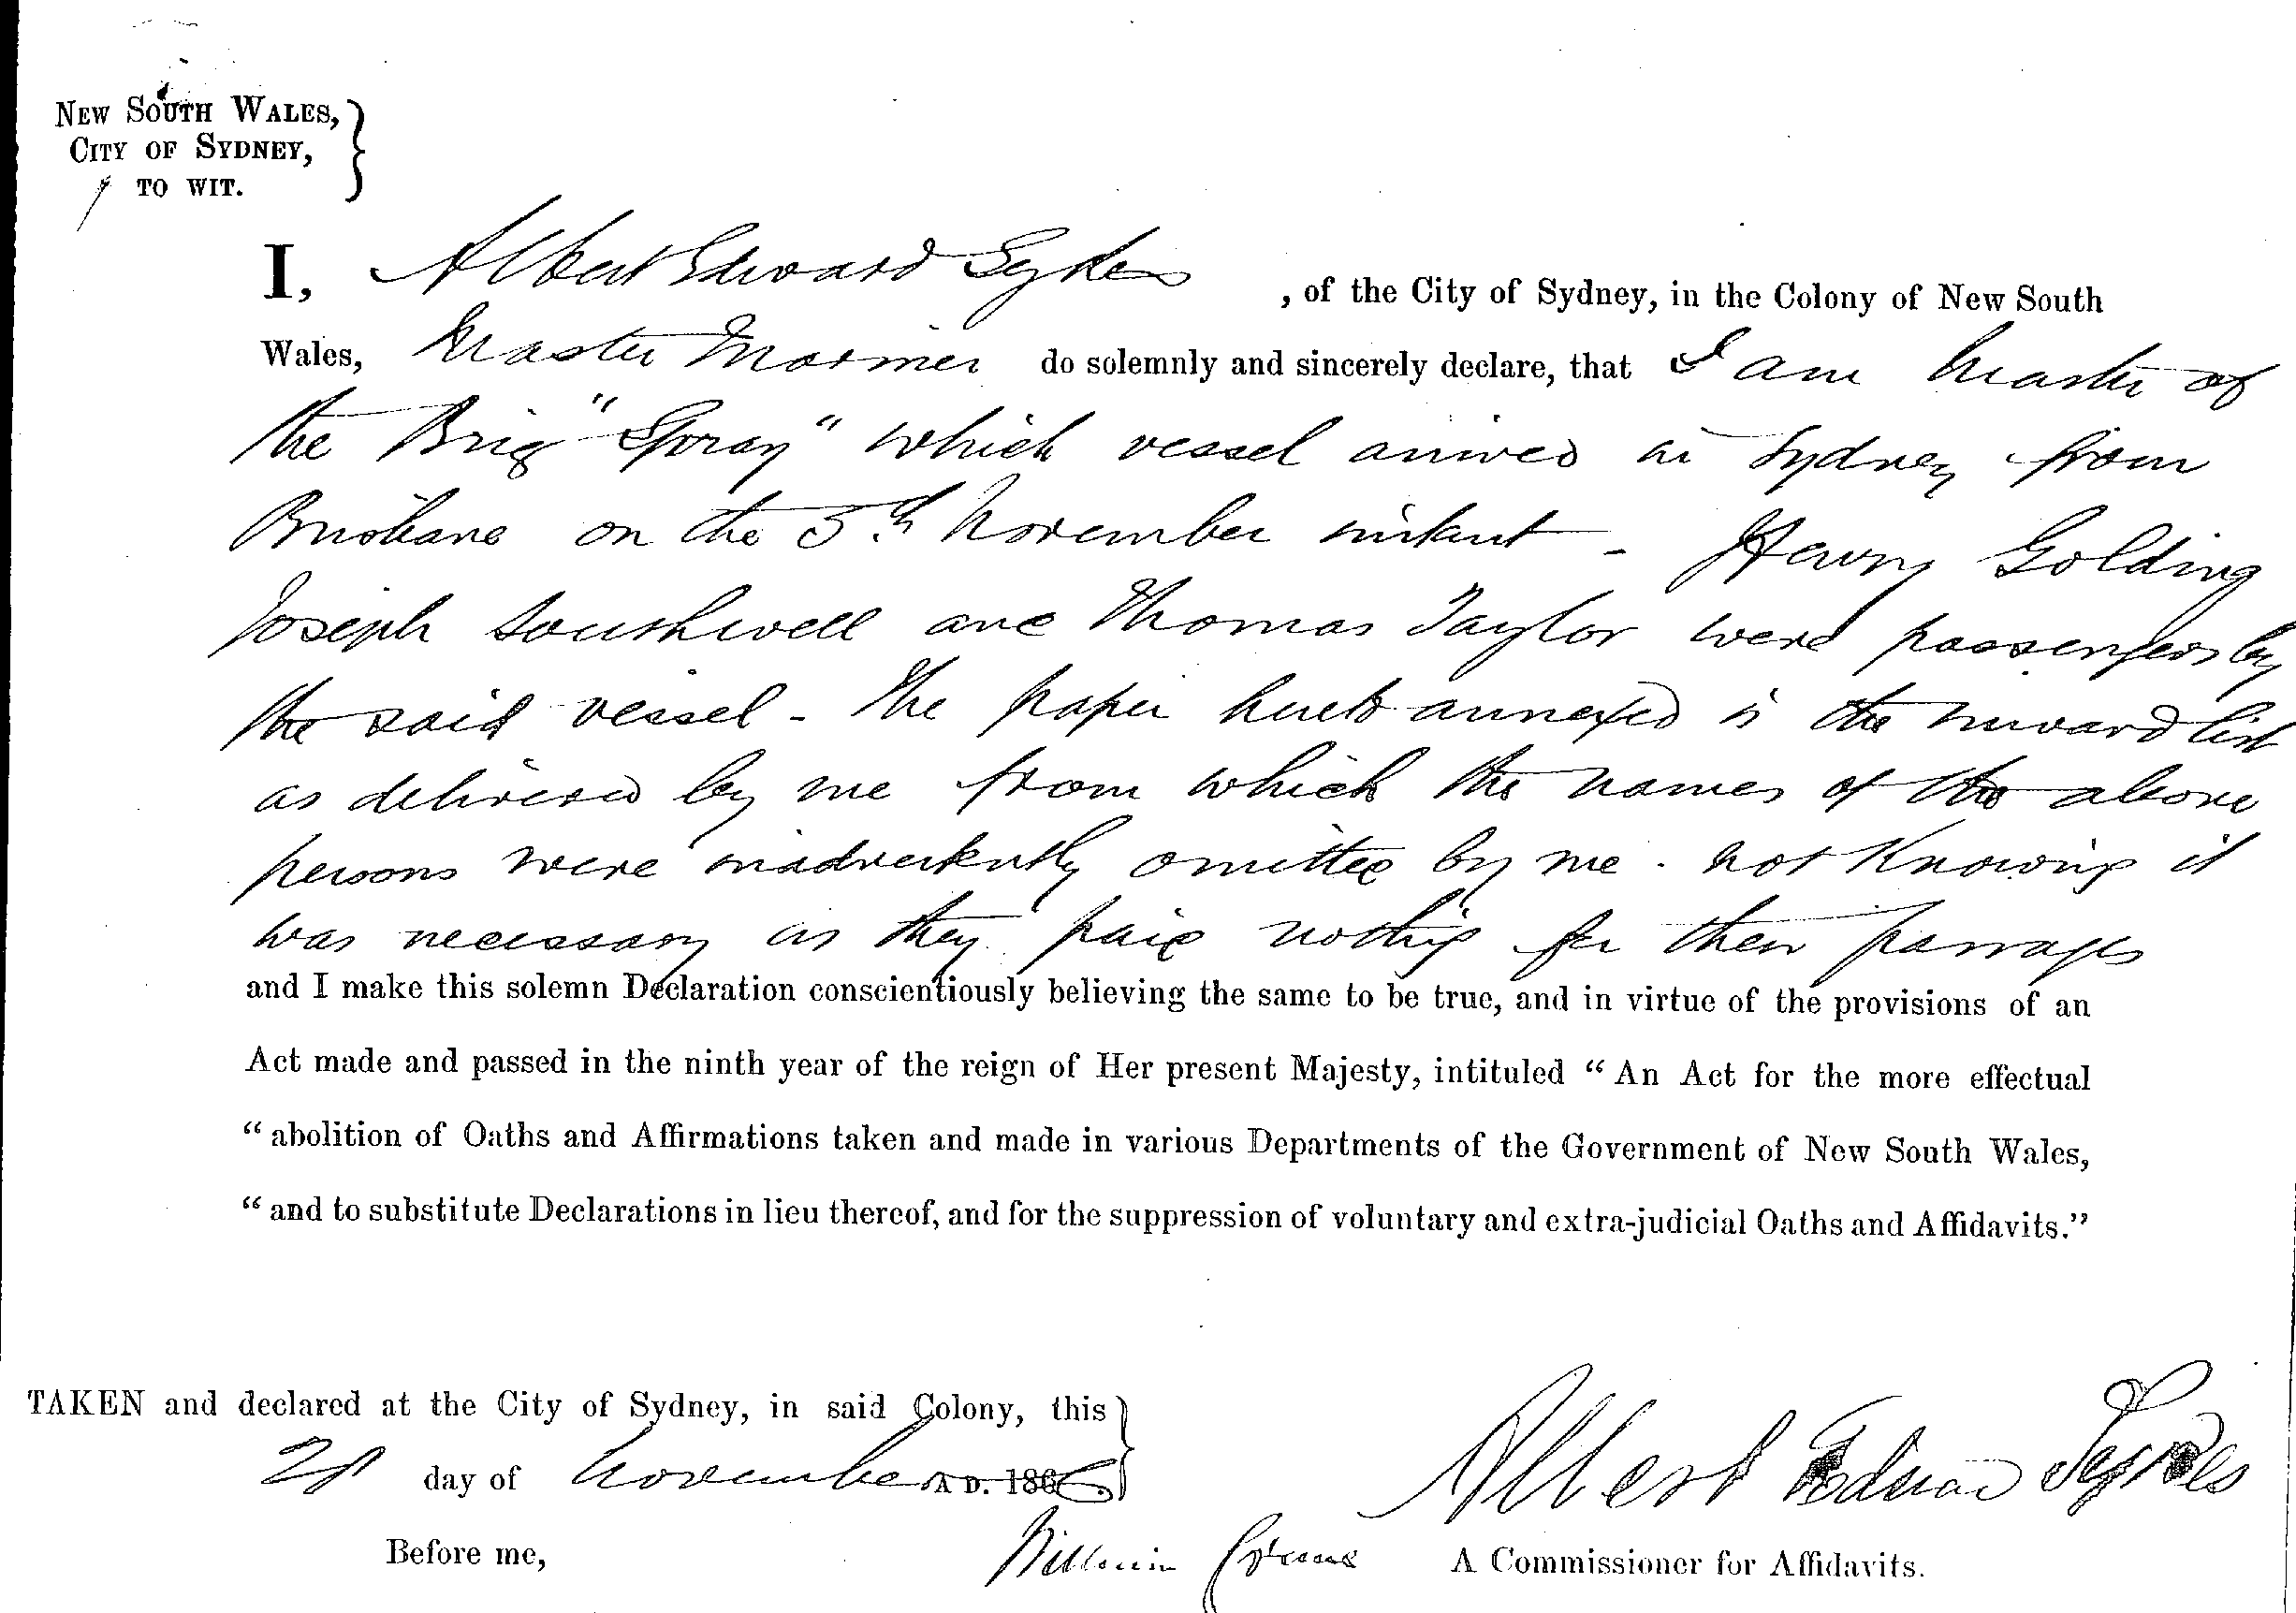 NEW SOUTH WALES,
CITY OF SYDNEY,
TO WIT.
I, Albert Edward Sykes, of the City of Sydney, in the Colony of New South
Wales, Master Mariner do solemnly and sincerely declare, that I am Master of
the Brig "Spray" which vessel arrived in Sydney from
Brisbane on the 5th November instant - Henry Golding
Joseph Southwell and Thomas Taylor were passengers by
the said vessel - The paper hereto annexed is the inward list
as delivered by me from which the names of the above
persons were inadvertently omitted by me. not knowing it
was necessary as they paid nothing for their passages
and I make this solemn Declaration conscientiously believing the same to be true, and in virtue of the provisions of an
Act made and passed in the ninth year of the reign of Her present Majesty, intituled "An Act for the more effectual
"abolition of Oaths and Affirmations taken and made in various Departments of the Government of New South Wales,
"and to substitute Declarations in lieu thereof, and for the suppression of voluntary and extra-judicial Oaths and Affidavits."
TAKEN and declared at the City of Sydney, in said Colony, this
day of November A D. 1866. Albert Edward Sykes
Before me, William A Commissioner for Affidavits.